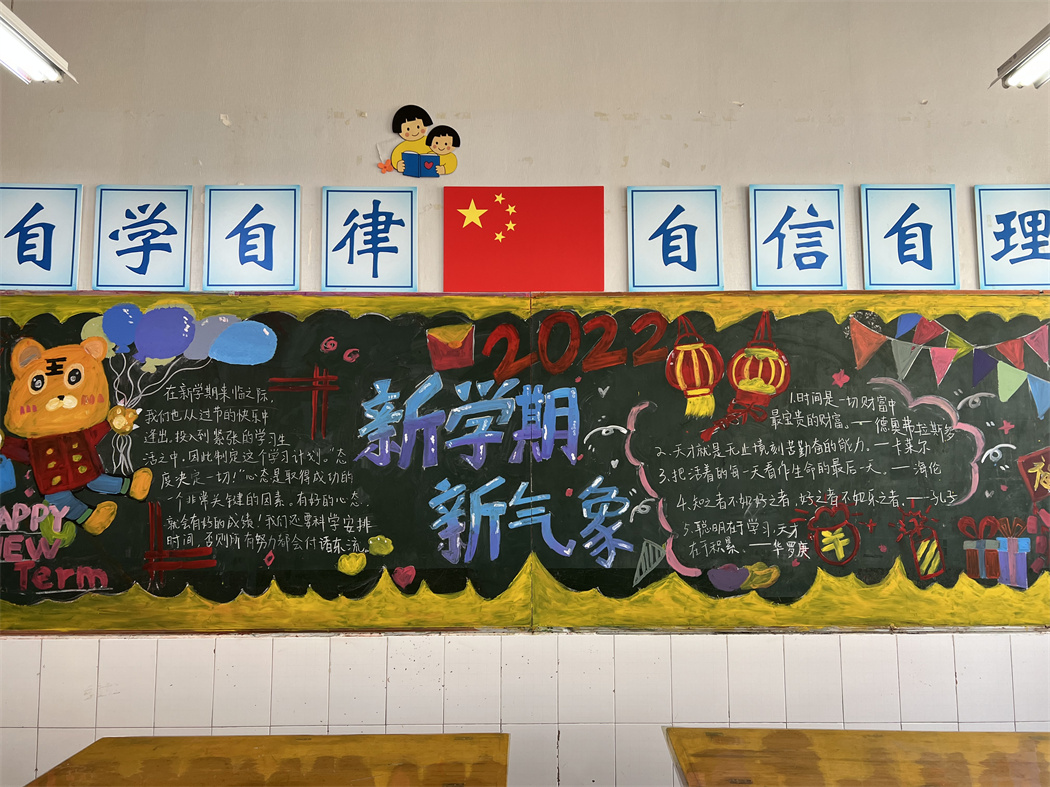 自学自律
自信自理
2022
新学期
新气象
王
在新学期来临之际,
我们也从过节的快乐中
迸出,投入到紧张的学习生
活之中,因此制定这个学习计划。“态
度决定一切!”心态是取得成功的
一个非常关键的因素。有好的心态
就会有好的成绩!我们还要科学安排
时间,否则所有努力都会付诸东流。
HAPPY
NEW
Term
1.时间是一切财富中
最宝贵的财富。——德奥弗拉斯多
2.天才就是无止境刻苦勤奋的能力。——卡莱尔
3.把活着的每一天看作生命的最后一天。——海伦
4.知之者不如好之者,好之者不如乐之者。——孔子
5.聪明在于学习,天才
在于积累。——华罗庚
¥